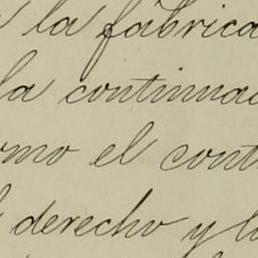 la fabrica
la continua
omo el cont
derecho y l